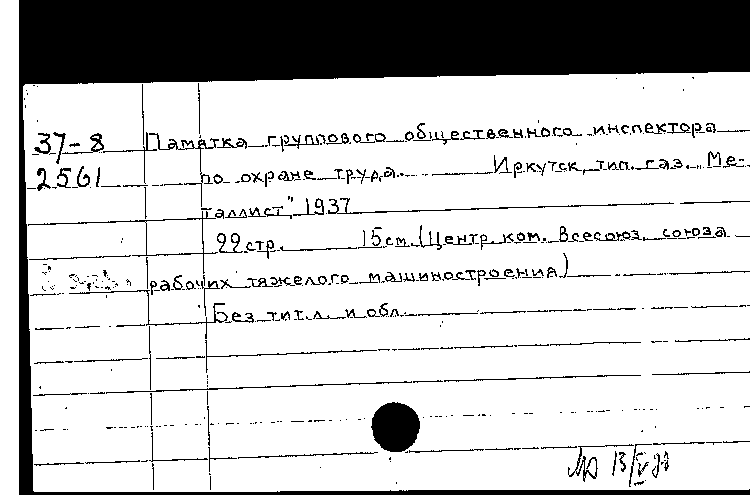 37-8 Памятка группового общественного инспектора
2561 по охране труда. Иркутск, тип. газ. „Ме-
таллист", 1937
22стр. 15см. (Центр. ком. Всесоюз. союза
рабочих тяжелого машиностроения)
Без тит.л. и обл.
13/V